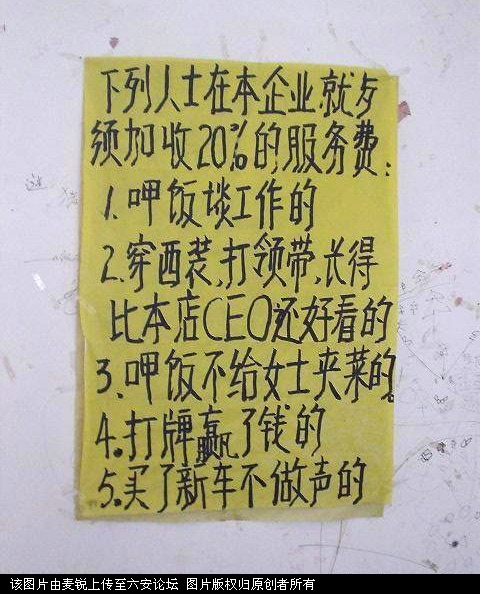 下列人士在本企业就歺
须加收20%的服务费:
1.呷饭谈工作的
2.穿西装,打领带,长得
比本店CEO还好看的
3、呷饭不给女士夹菜的。
4.打牌赢了钱的
5.买了新车不做声的
该图片由麦锐上传至六安论坛 图片版权归原创者所有